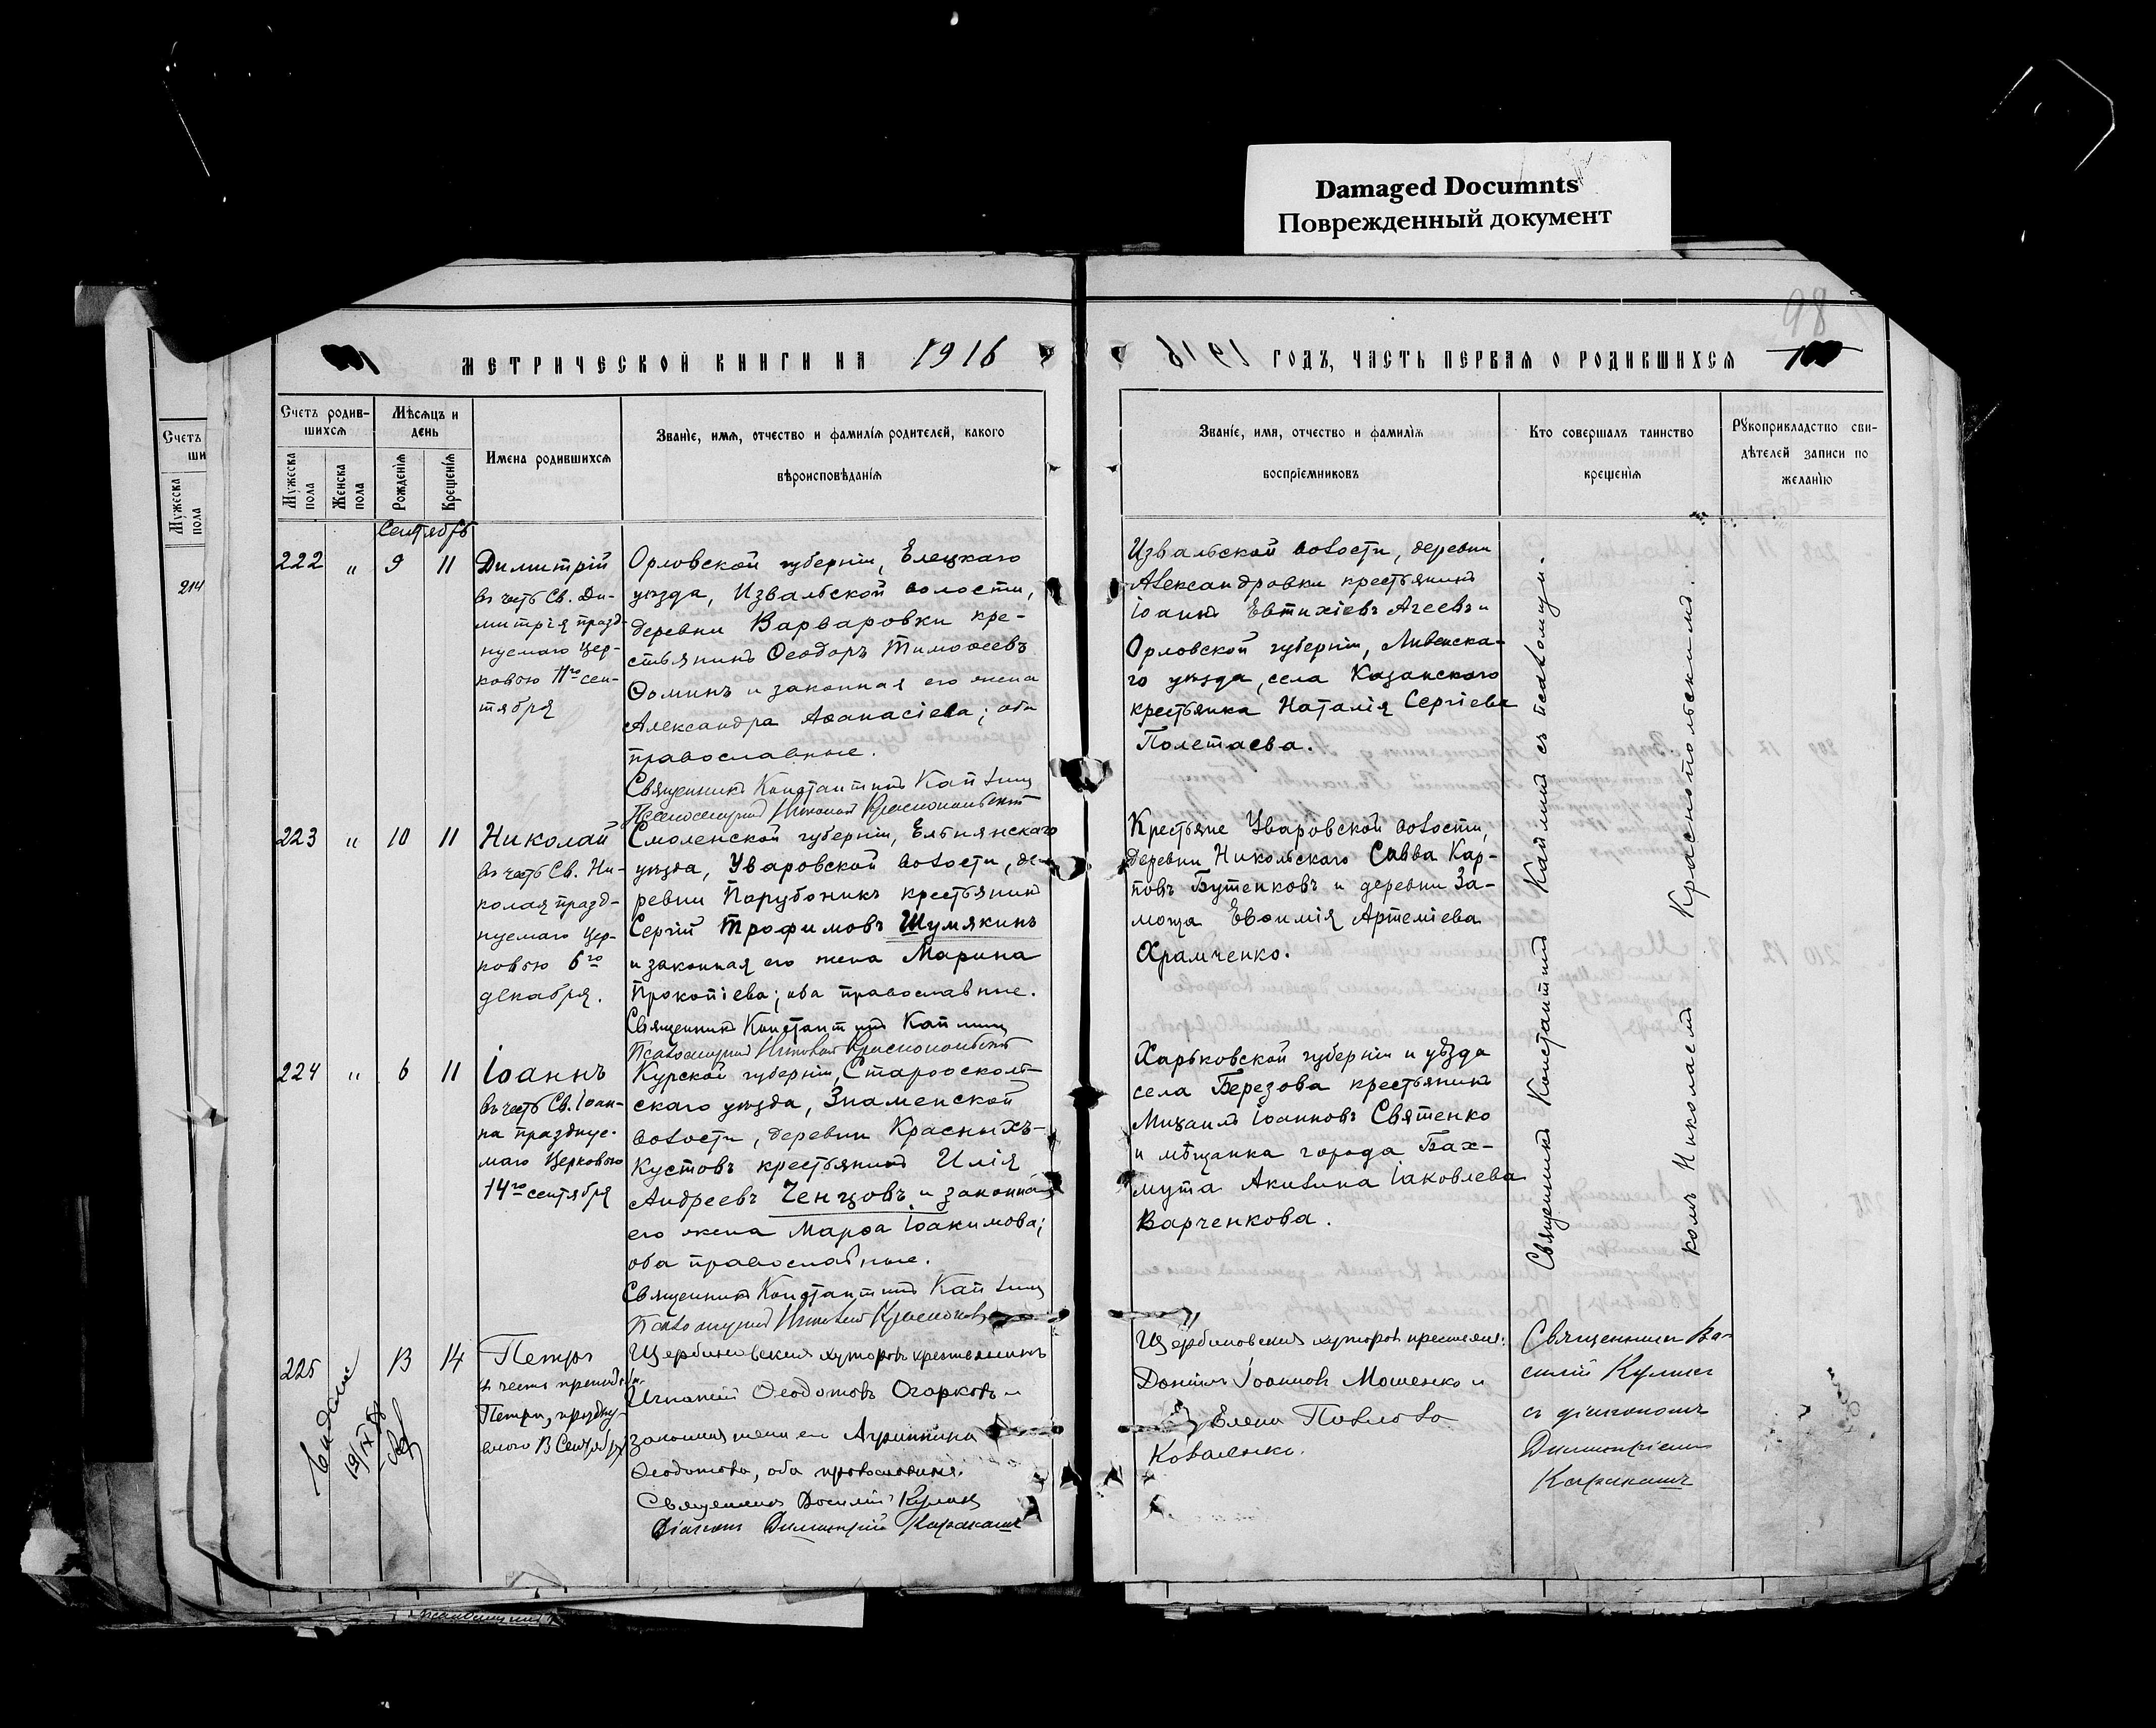 Damaged Documnts
Поврежденный документ
98
МЕТРИЧЕСКОЙ КНИГИ НА 1916
1916 ГОДЪ, ЧАСТЬ ПЕРВАЯ О РОДИВШИХСЯ
Счетъ родив-
шихся
Мужеска пола
Женска пола
Мѣсяцъ и
день
Рожденія
Крещенія
Имена родившихся
Званіе, имя, отчество и фамилія родителей, какого
вѣроисповѣданія
Званіе, имя, отчество и фамилія
воспріемниковъ
Кто совершалъ таинство
крещенія
Рукоприкладство сви-
дѣтелей записи по
желанію
Счетъ
ши
Мужеска
пола
214
Сентябрь
222 " 9 11
Димитрій
въ честь Св. Ди-
митрія празд-
нуемаго Цер-
ковью 11го сен-
тября
Орловской губерніи, Елецкаго
уѣзда, Извальской волости,
деревни Варваровки кре-
стьянинъ Ѳеодоръ Тимоѳеевъ
Ѳоминъ и законная его жена
Александра Аѳанасіева; оба
православные.
Священникъ Константинъ Каплинъ
Псаломщикъ Николай Краснопольскій
Извальской волости, деревни
Александровки крестьянинъ
Іоаннъ Евтихіевъ Агеевъ и
Орловской губерніи, Ливенска-
го уѣзда, села Казанского
крестьянка Наталія Сергіева
Полетаева.
223 " 10 11
Николай
въ честь Св. Ни-
колая празд-
нуемаго Цер-
ковью 6го
декабря.
Смоленской губерніи, Ельнянскаго
уѣзда, Уваровской волости, де-
ревни Порубоникъ крестьянинъ
Сергій Трофимовъ Шумякинъ
и законная его жена Марина
Прокопіева; оба православные.
Священникъ Константинъ Каплинъ
Псаломщикъ Николай Краснопольскій
Крестьяне Уваровской волости,
деревни Никольскаго Савва Кар-
повъ Бутенковъ и деревни За-
мощa Евѳимія Артеміева
Храмченко.
224 " 6 11
Іоаннъ
въ честь Св. Іоан-
на празднуе-
маго Церковью
14го сентября
Курской губерніи, Старооскол-
скаго уѣзда, Знаменской
волости, деревни Красныхъ-
Кустовъ крестьянинъ Илія
Андреевъ Ченцовъ и законная
его жена Марѳа Іоакимова;
оба православные.
Священникъ Константинъ Каплинъ
Псаломщикъ Николай
Харьковской губерніи и уѣзда
села Березова крестьянинъ
Михаилъ Іоанновъ Святенко
и мѣщанка города Бах-
мута Акилина Іаковлева
Варченкова.
Священникъ Константинъ Каплинъ съ псаломщи-
комъ Николаемъ Краснопольскимъ.
225 13 14
Петръ
Петра, праздну-
емаго 13 Сентября
Щербиновскихъ хуторовъ крестьянинъ
Игнатій Ѳеодотовъ Огарковъ и
законная жена его Агриппина
Ѳеодотова, оба православные.
Священникъ Василій Кулик
Діаконъ Димитрій Каракашъ
Щербиновскихъ хуторовъ крестьяне:
Даніилъ Іоанновъ Мошенко и
Елена Павлова
Коваленко.
Священникъ Ва-
силій Кулик
съ діакономъ
Димитріемъ
Каракашъ